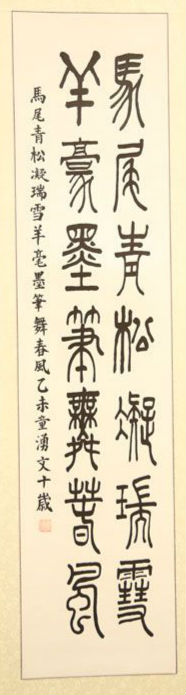 馬尾青松凝瑞雪
羊豪墨筆舞春風
馬尾青松凝瑞雪羊毫墨筆舞春風乙未童湧文十歲